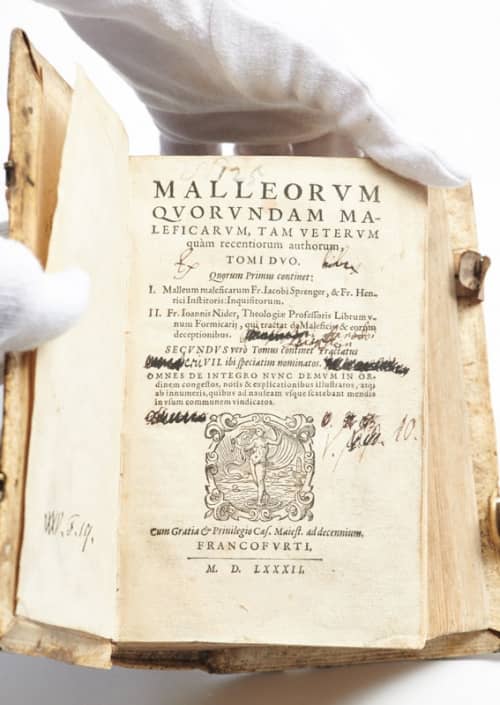 MALLEORVM
QVORVNDAM MA-
LEFICARVM, TAM VETERVM
quàm recentiorum authorum,
TOMI DVO.
Ex
Quorum Primus continet:
I. Malleum maleficarum Fr. Iacobi Sprenger, & Fr. Hen-
rici Institoris: Inquisitorum.
II. Fr. Ioannis Nider, Theologiæ Professoris Librum v-
num Formicarij, qui tractat de Maleficis & eorum
deceptionibus.
SECVNDVS verò Tomus continet Tractatus
VII. ibi speciatim nominatos.
OMNES DE INTEGRO NVNC DEMVM IN OR-
dinem congestos, notis & explicationibus illustratos, atq;
ab innumeris, quibus ad nauseam vsque scatebant mendis
in vsum communem vindicatos.
10.
Cum Gratia & Priuilegio Cæs. Maiest. ad decennium.
FRANCOFVRTI,
M. D. LXXXII.